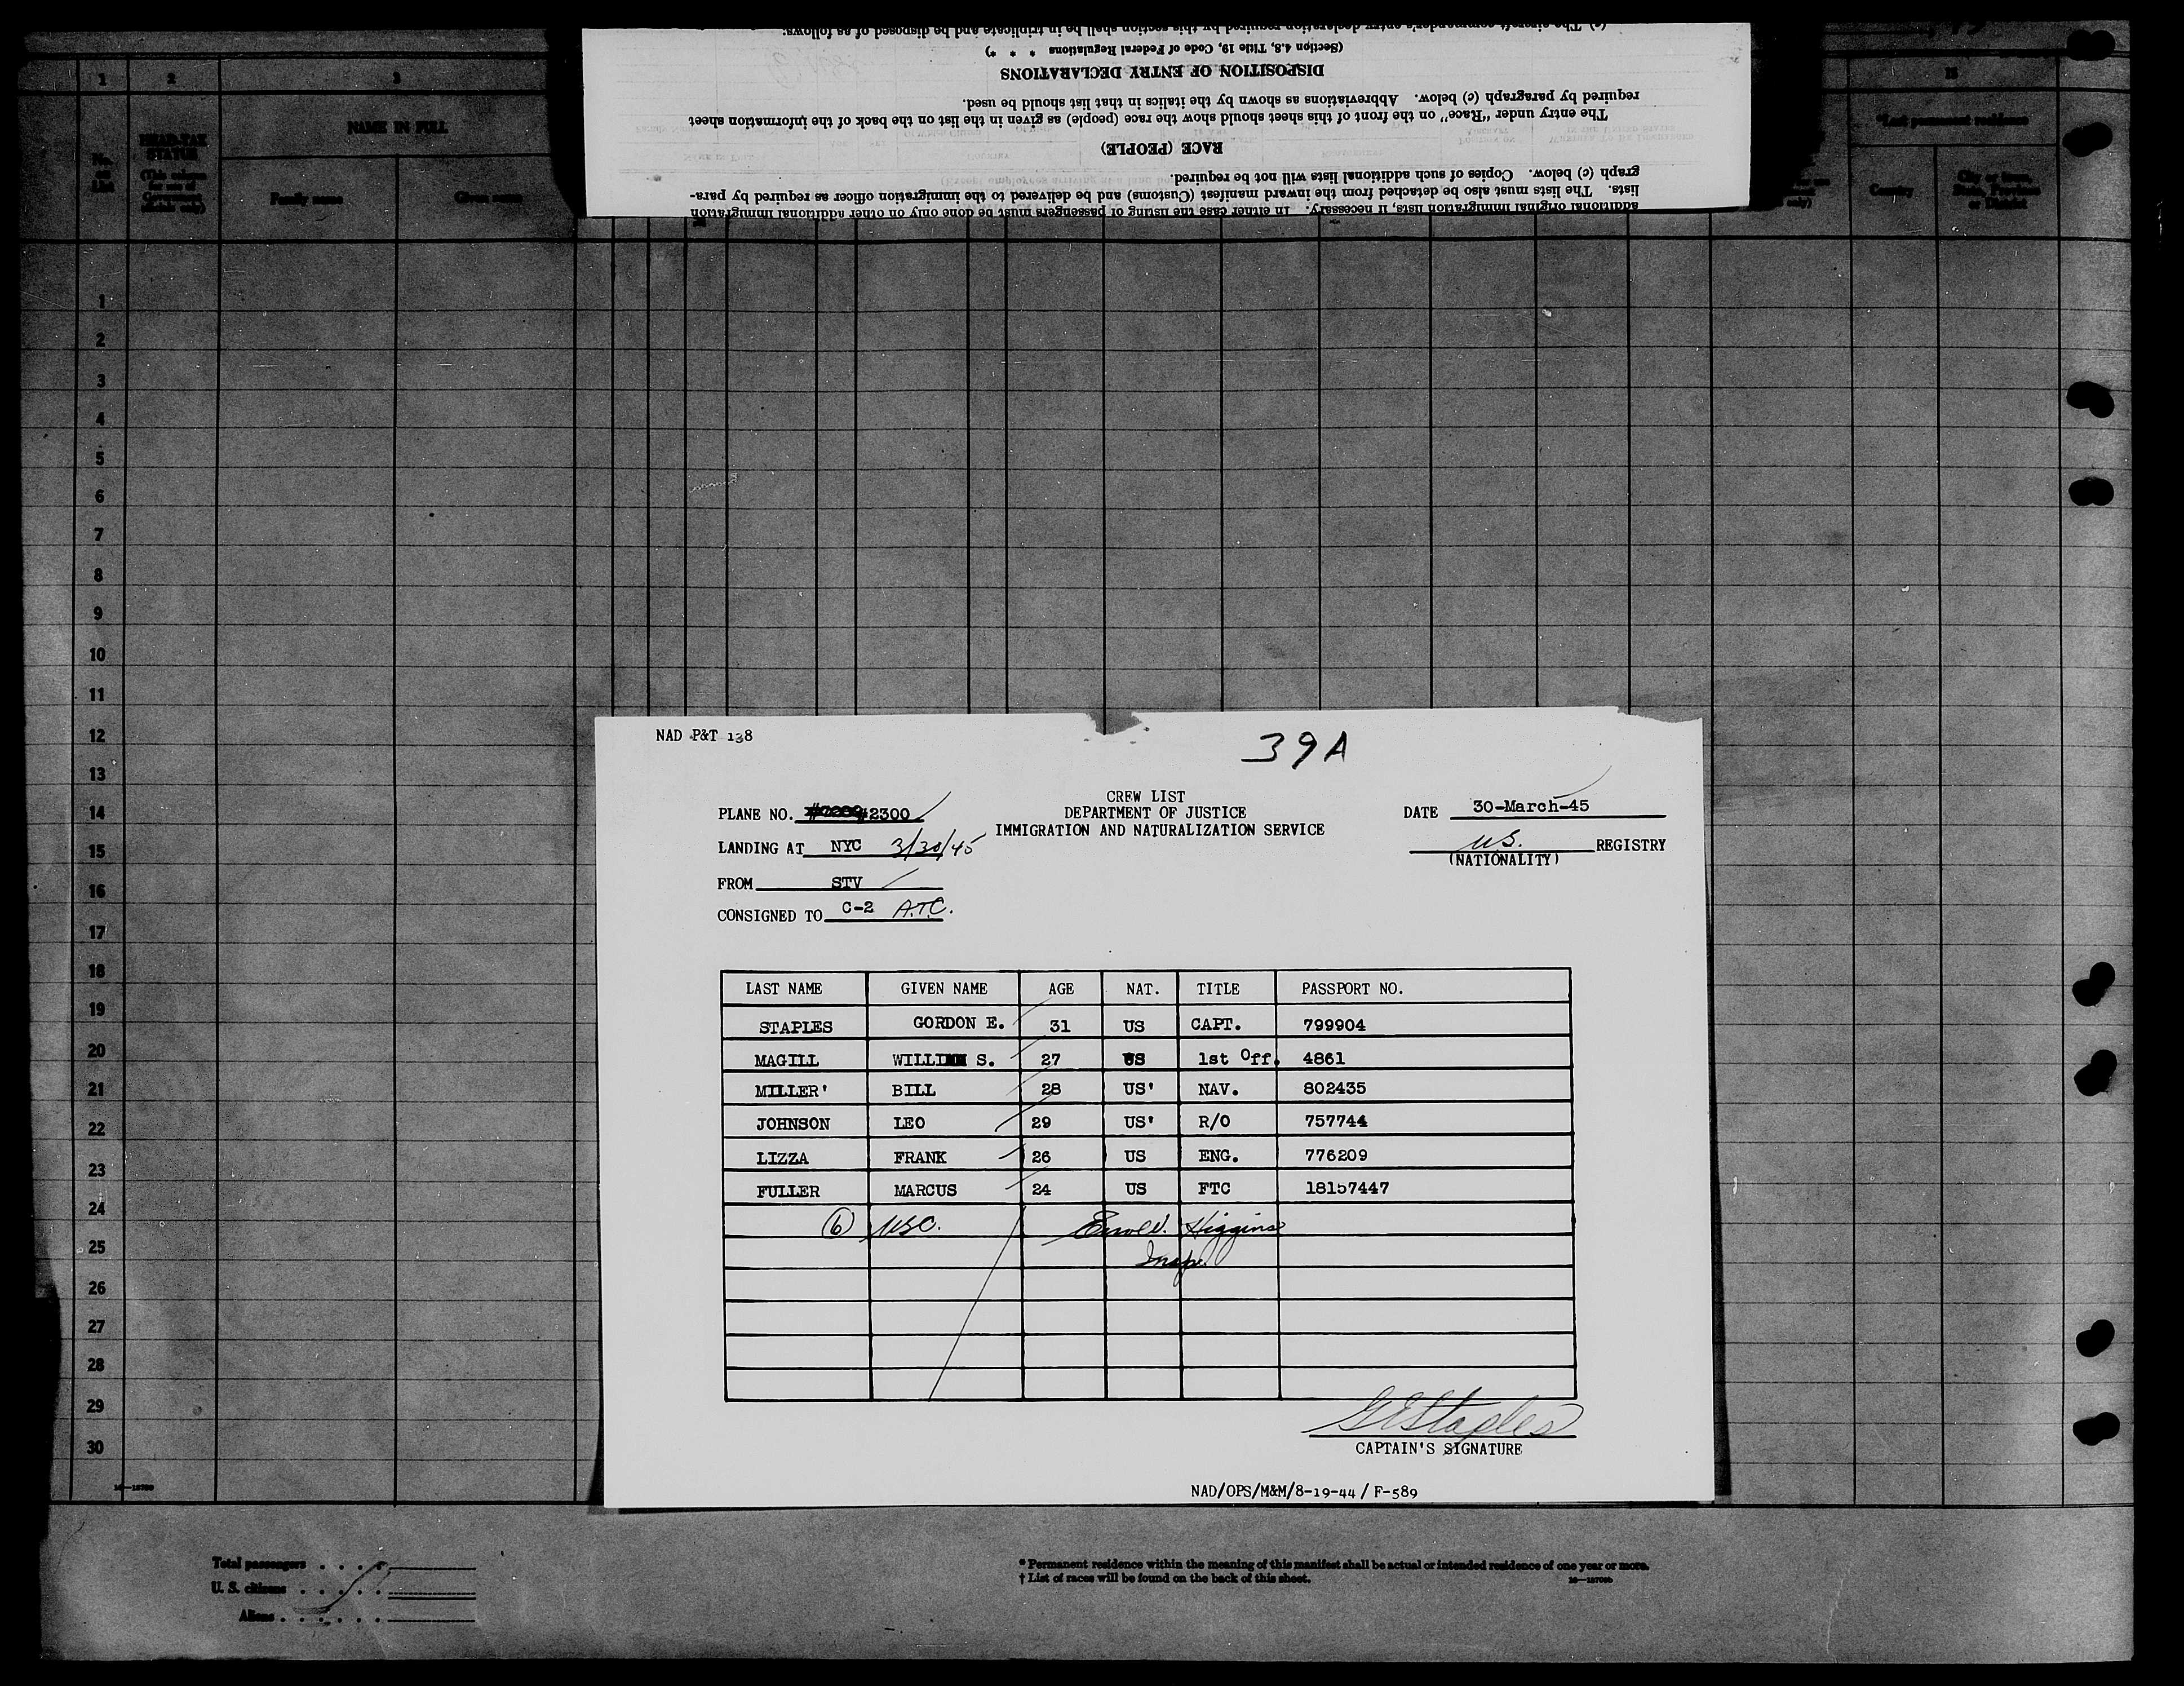 (c) The aircraft commander's entry declaration required by this section shall be in triplicate and be disposed of as follows:
(Section 4.8, Title 19, Code of Federal Regulations * * *)
DISPOSITION OF ENTRY DECLARATIONS
required by paragraph (c) below. Abbreviations as shown by the italics in that list should be used.
The entry under "Race" on the front of this sheet should show the race (people) as given in the list on the back of the information sheet
RACE (PEOPLE)
graph (c) below. Copies of such additional lists will not be required.
lists. The lists must also be detached from the inward manifest (Customs) and be delivered to the immigration officer as required by para-
additional original immigration lists, if necessary. In either case the listing of passengers must be done only on other additional immigration
1 2 3
No. on List
HEAD-TAX STATUS
(This column for use of Government officials only)
NAME IN FULL
Family name Given name
*Last permanent residence
Country
City or town, State, Province or District
only)
1
2
3
4
5
6
7
8
9
10
11
12
13
14
15
16
17
18
19
20
21
22
23
24
25
26
27
28
29
30
NAD P&T 138
39A
CREW LIST
DEPARTMENT OF JUSTICE
IMMIGRATION AND NATURALIZATION SERVICE
PLANE NO. #2300
LANDING AT NYC 3/30/45
FROM STV
CONSIGNED TO C-2 A.T.C.
DATE 30-March-45
U.S. REGISTRY
(NATIONALITY)
LAST NAME GIVEN NAME AGE NAT. TITLE PASSPORT NO.
STAPLES GORDON E. 31 US CAPT. 799904
MAGILL S. 27 US 1st Off. 4861
MILLER' BILL 28 US' NAV. 802435
JOHNSON LEO 29 US' R/O 757744
LIZZA FRANK 26 US ENG. 776209
FULLER MARCUS 24 US FTC 18157447
(6) USC. Higgins
Insp.
GEStaples
CAPTAIN'S SIGNATURE
NAD/OPS/M&M/8-19-44 / F-589
Total passengers . . . .
U. S. citizens . . . . .
Aliens . . . . . .
* Permanent residence within the meaning of this manifest shall be actual or intended residence of one year or more.
† List of races will be found on the back of this sheet.